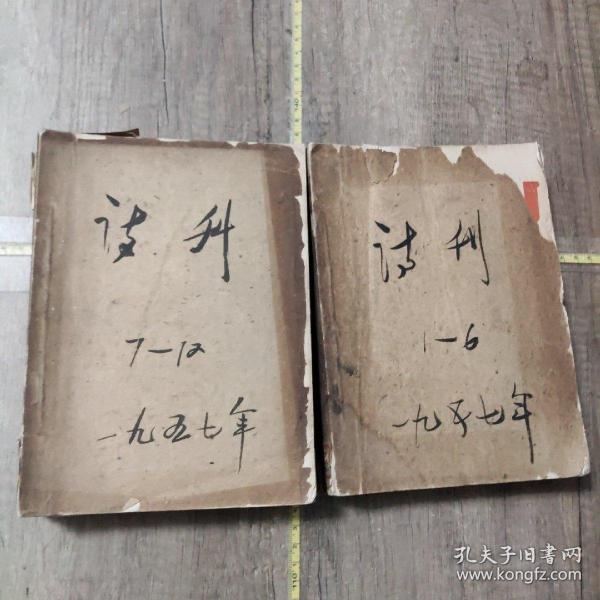 诗刊
7—12
一九五七年
诗刊
1—6
一九五七年
孔夫子旧书网
www.kongfz.com